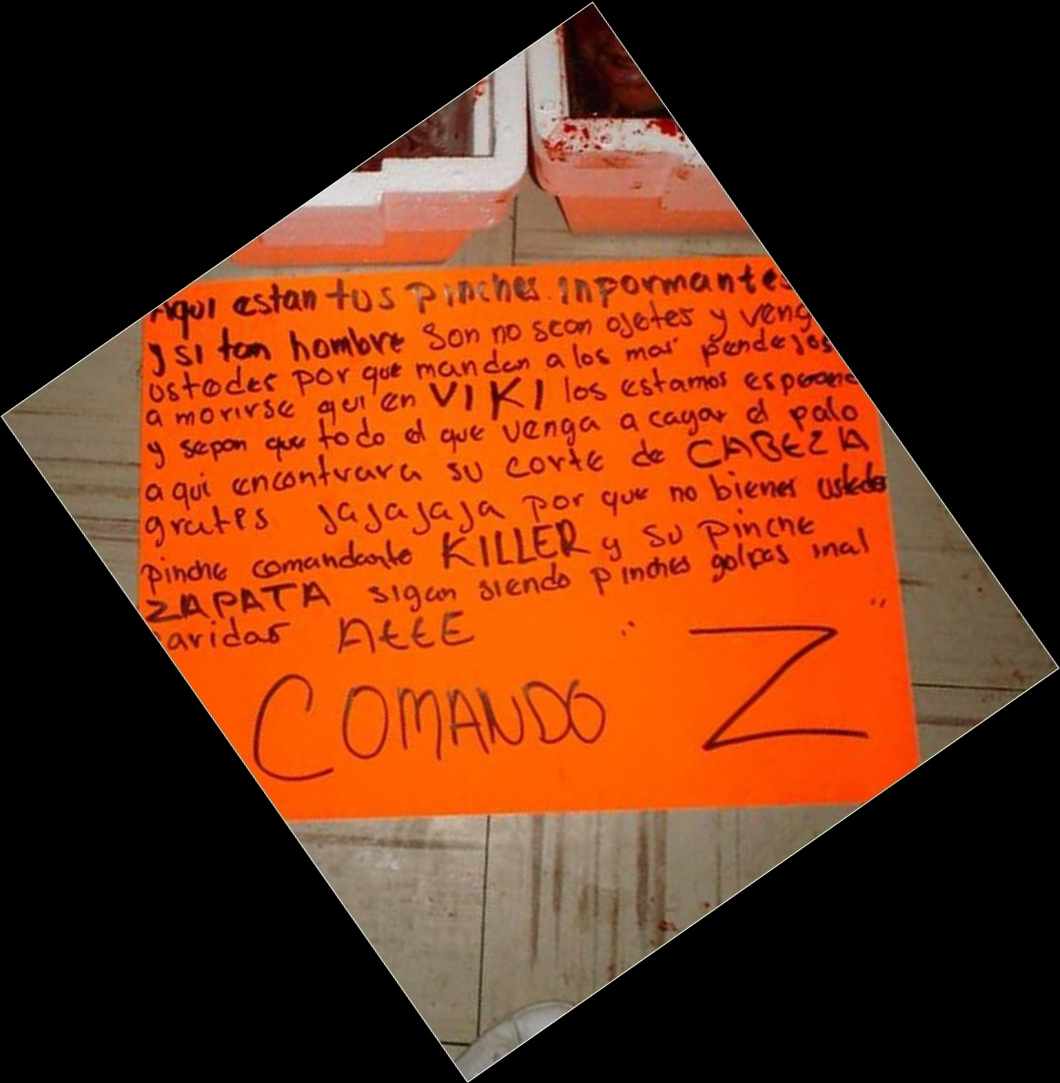 Aqui estan tus pinches inpormantes
y si tan hombre son no sean ojetes y veng
ustedes por que mandan a los mas pendejos
a morirse qui en VIKI los estamos esperand
y sepan que todo el que venga a cagar el palo
aqui encontrara su corte de CABEZA
gratis jajajaja por que no bienes ustedes
pinche comandante KILLER y su pinche
ZAPATA sigan siendo pinches golpes inal
aridas Atte
COMANDO "Z"